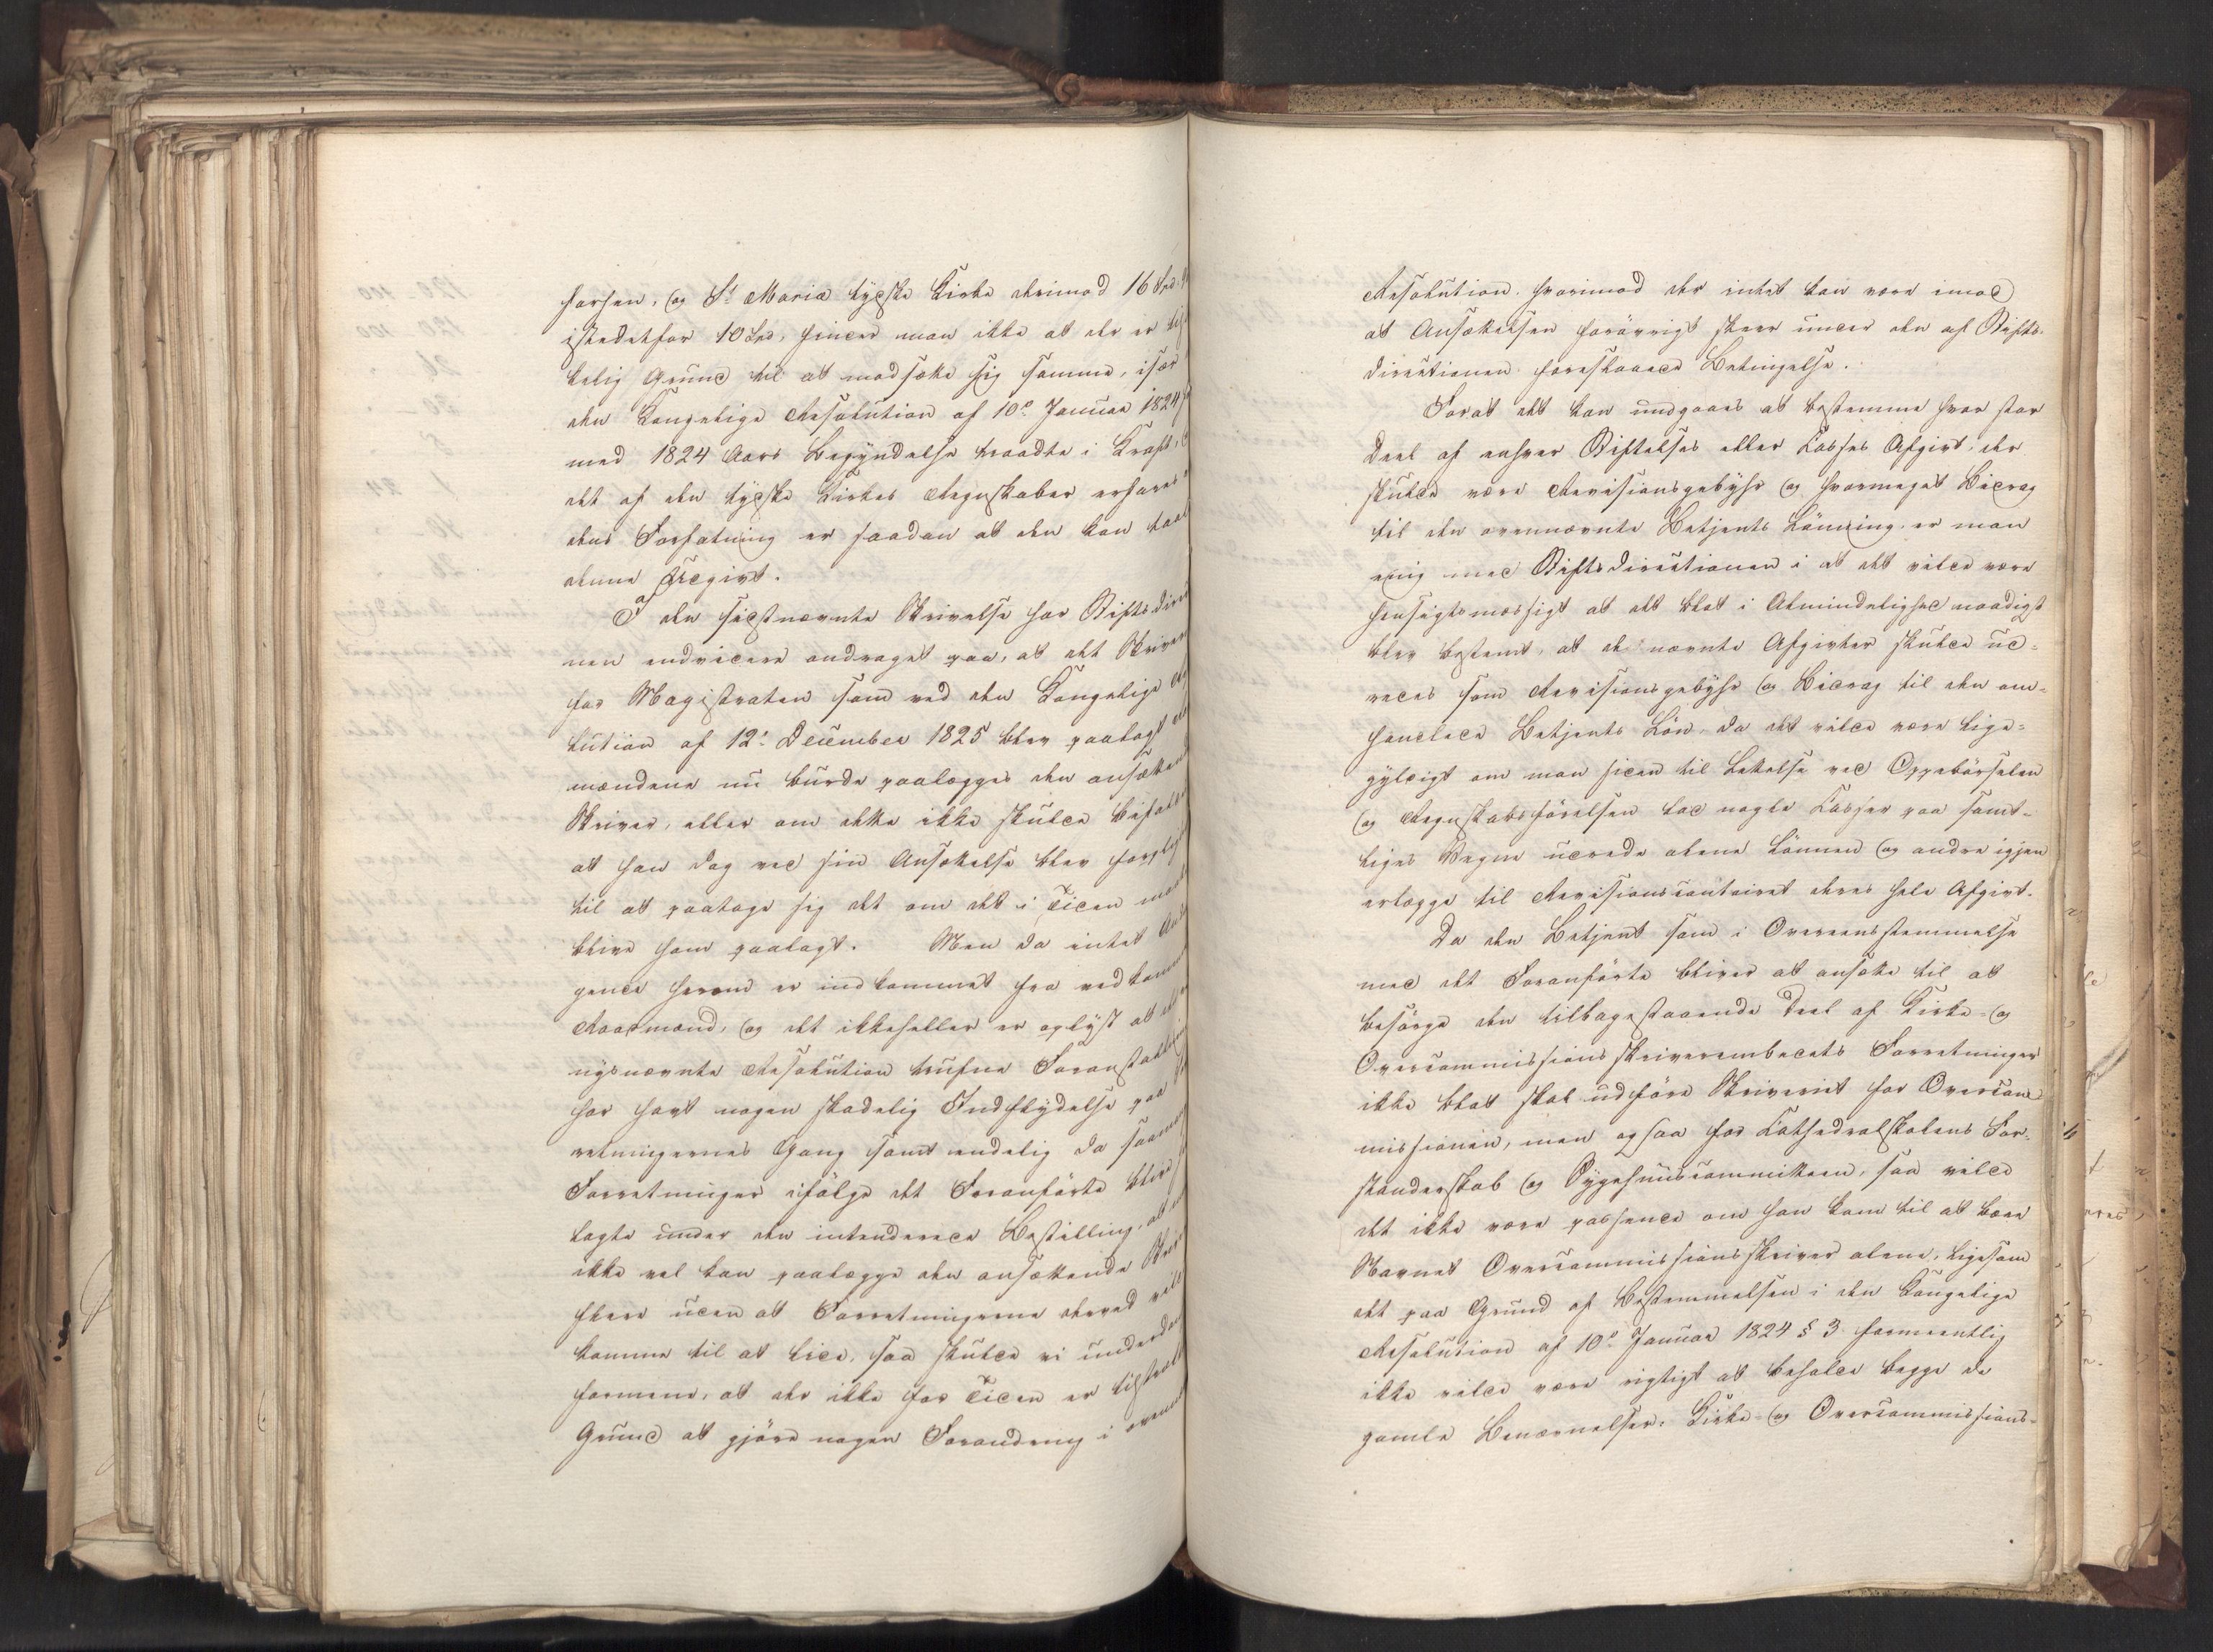 hersen, og St Mariæ tydske Kirke derimod 16 Spd.
istedetfor 10 Spd, finder man ikke at der er
kelig Grund til at modsætte sig samme, især
den Kongelige Resolution af 10de Januar 1824
med 1824 Aars Begyndelse traadte i Kraft,
det af den tydske Kirkes Regnskaber erfares
dens Forfatning er saadan at den kan
denne Udgivt.
I den sidstnævnte Skrivelse har Stiftsdirec
nen endvidere andraget paa, at det Skriver
for Magistraten som ved den Kongelige
lution af 12te December 1825 blev paalagt
mændene nu burde paalægges den ansættende
Skriver, eller om dette ikke skulde bifaldes
at han dog ved sin Ansættelse blev
til at paatage sig det om det i Tiden
blive ham paalagt. Men da intet
gende herom er indkommet fra vedkom
Raadmænd, og det ikkeheller er oplyst at
nysnævnte Resolution trufne Foranstaltning
har havt nogen skadelig Indflydelse paa
retningernes Gang samt endelig da
Forretninger ifølge det Foranførte blive
lagte under den intenderede Bestilling, at
ikke vel kan paalægge den ansættende
flere uden at Forretningerne derved
komme til at lide, saa skulde vi underdan
formene, at der ikke for Tiden er
Grund at gjøre nogen Forandring i
Resolution, hvorimod der intet kan være imod
at Ansættelsen forøvrigt skeer under den af Stifts-
directionen foreslaaede Betingelse.
Forat det kan undgaaes at bestemme hvor stor
Deel af enhver Stiftelses eller Casses Afgivt, der
skulde være Revisionsgebyhr og hvormeget Bidrag
til den ovennævnte Betjents Lønning, er man
enig med Stiftsdirectionen i at det vilde være
hensigtsmæssigt at det blot i Almindelighed naadigst
blev bestemt, at de nævnte Afgivter skulde ud-
redes som Revisionsgebyhr og Bidrag til den om-
handlede Betjents Løn, da det vilde være lige-
gyldigt om man siden til Lettelse ved Oppebørselen
og Regnskabsførelsen lod nogle Casser paa samt-
liges Vegne udrede alene Lønnen og andre igjen
erlægge til Revisionscontoiret deres hele Afgivt.
Da den Betjent som i Overeensstemmelse
med det Foranførte bliver at ansætte til at
besørge den tilbagestaaende Deel af Kirke- og
Overcommissionsskriverembedets Forretninger
ikke blot skal udføre Skriveriet for Overcom
missionen, men ogsaa for Kathedralskolens For-
standerskab og Sygehuuscommitteen, saa vilde
det ikke være passende om han kom til at bære
Navnet Overcommissionsskriver alene, ligesom
det paa Grund af Bestemmelsen i den Kongelige
Resolution af 10de Januar 1824 § 3 formeentlig
ikke vilde være rigtigt at beholde begge de
gamle Benævnelser: Kirke- og Overcommissions-